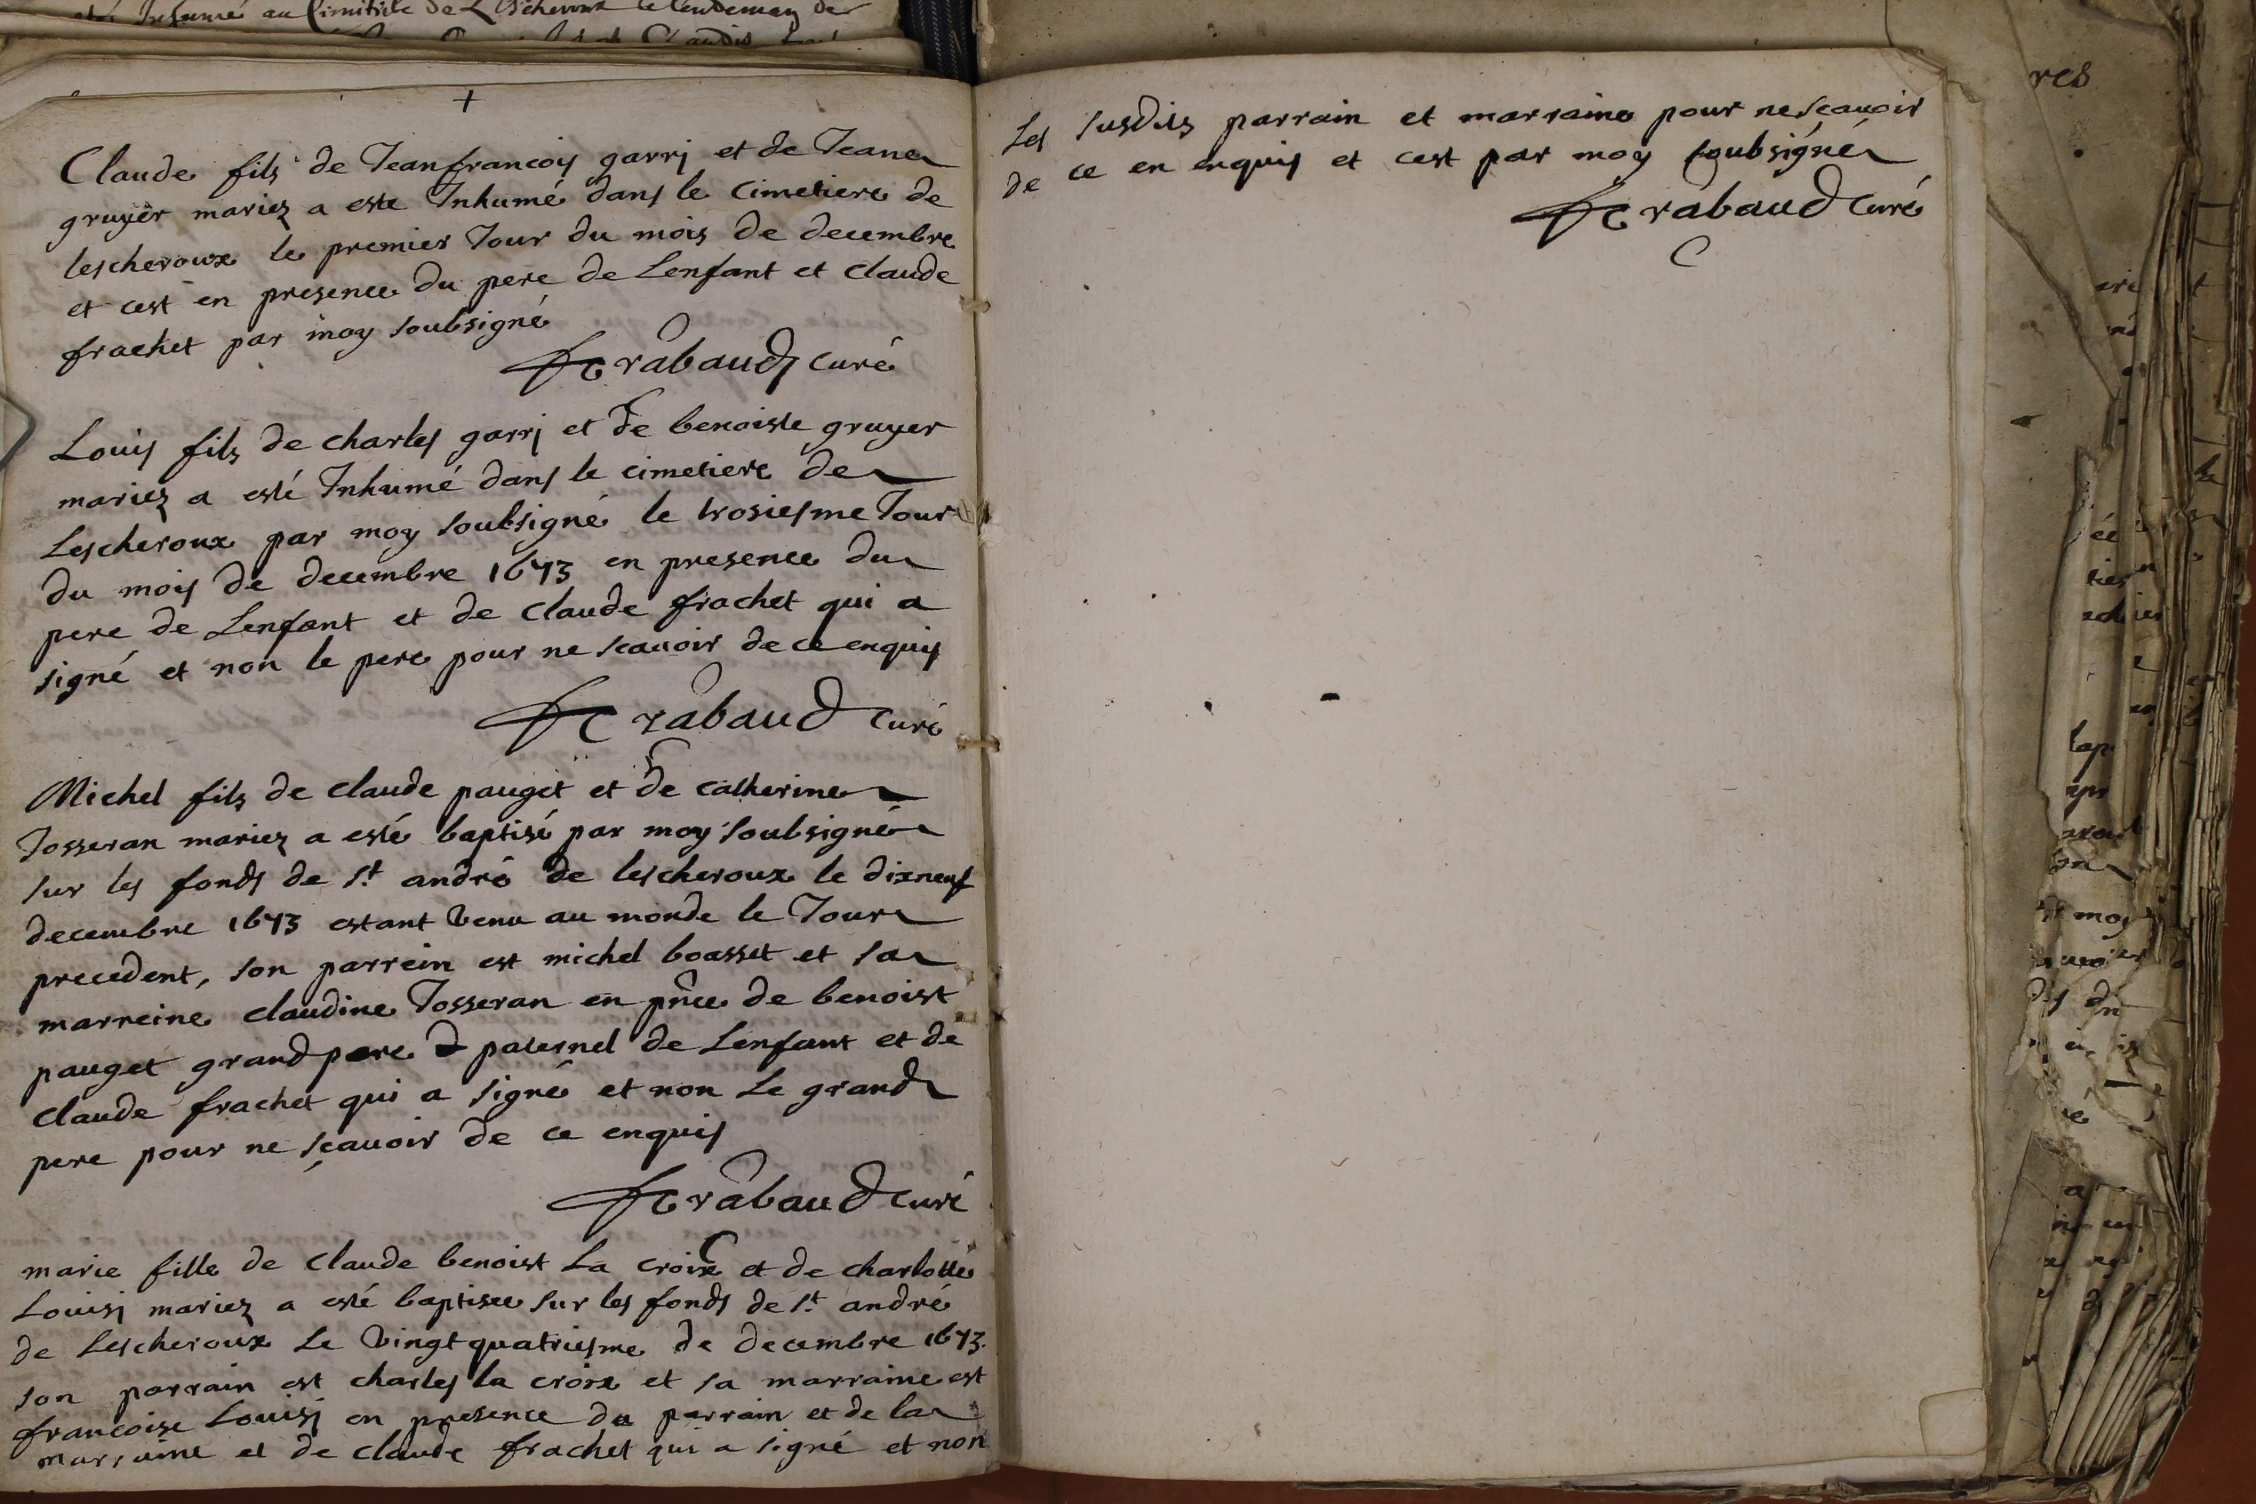 Inhumé au Cimitiele de Lescheroux le lendemain de
+
Claude fils de Jeanfrancois garrj et de Jeane
gruyer mariez a este Inhumé dans le cimetiere de
lescheroux le premier Jour du mois de decembre
et cest en presence du pere de Lenfant et claude
frachet par moy soubsigné
rabaud curé
Louis fils de charles garrj et de benoiste gruyer
mariez a esté Inhumé dans le cimetiere de
Lescheroux par moy soubsigné le trosiesme Jour
du mois de decembre 1673 en presence du
pere de Lenfant et de claude frachet qui a
signé et non le pere pour ne scauoir de ce enquis
rabaud curé
Michel fils de claude pauget et de catherine
Josseran mariez a esté baptisé par moy soubsigné
sur les fonds de st andré de lescheroux le dixneuf
decembre 1673 estant venu au monde le Jour
precedent, son parrein est michel boasset et sa
marreine claudine Josseran en pnce de benoist
pauget grand pere paternel de Lenfant et de
claude frachet qui a signé et non Le grand
pere pour ne scauoir de ce enquis
rabaud curé
marie fille de claude benoist La croix et de charlotte
Louisj mariez a esté baptisee sur les fonds de st andré
de Lescheroux Le vingtquatriesme de decembre 1673.
son parrain est charles la croix et sa marraine est
francoise Louisj en presence du parrain et de la
marraine et de claude frachet qui a signé et non
Les susdits parrain et marraine pour ne scauoir
de ce en enquis et cest par moy soubsigné
rabaud curé
res
moy